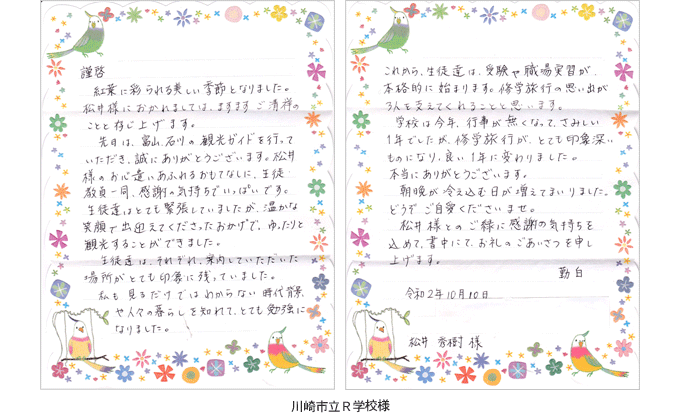 謹啓
紅葉に彩られる美しい季節となりました。
松井様におかれましては、ますますご清祥の
ことと存じ上げます。
先日は、富山、石川の観光ガイドを行って
いただき、誠にありがとうございます。松井
様のお心遣いあふれるおもてなしに、生徒・
教員一同、感謝の気持ちでいっぱいです。
生徒達はとても緊張していましたが、温かな
笑顔で出迎えてくださったおかげで、ゆったりと
観光することができました。
生徒達は、それぞれ、案内していただいた
場所がとても印象に残っていました。
私も見るだけではわからない時代背景
や人々の暮らしを知れて、とても勉強に
なりました。
これから、生徒達は、受験や職場実習が、
本格的に始まります。修学旅行の思い出が
3人を支えてくれることと思います。
学校は今年、行事が無くなって、さみしい
1年でしたが、修学旅行が、とても印象深い
ものになり、良い1年に変わりました。
本当にありがとうございます。
朝晩が冷え込む日が増えてまいりました。
どうぞご自愛くださいませ。
松井様とのご縁に感謝の気持ちを
込めて、書中にて、お礼のごあいさつを申し
上げます。
勤白
令和2年10月10日
松井 秀樹 様
川崎市立R学校様